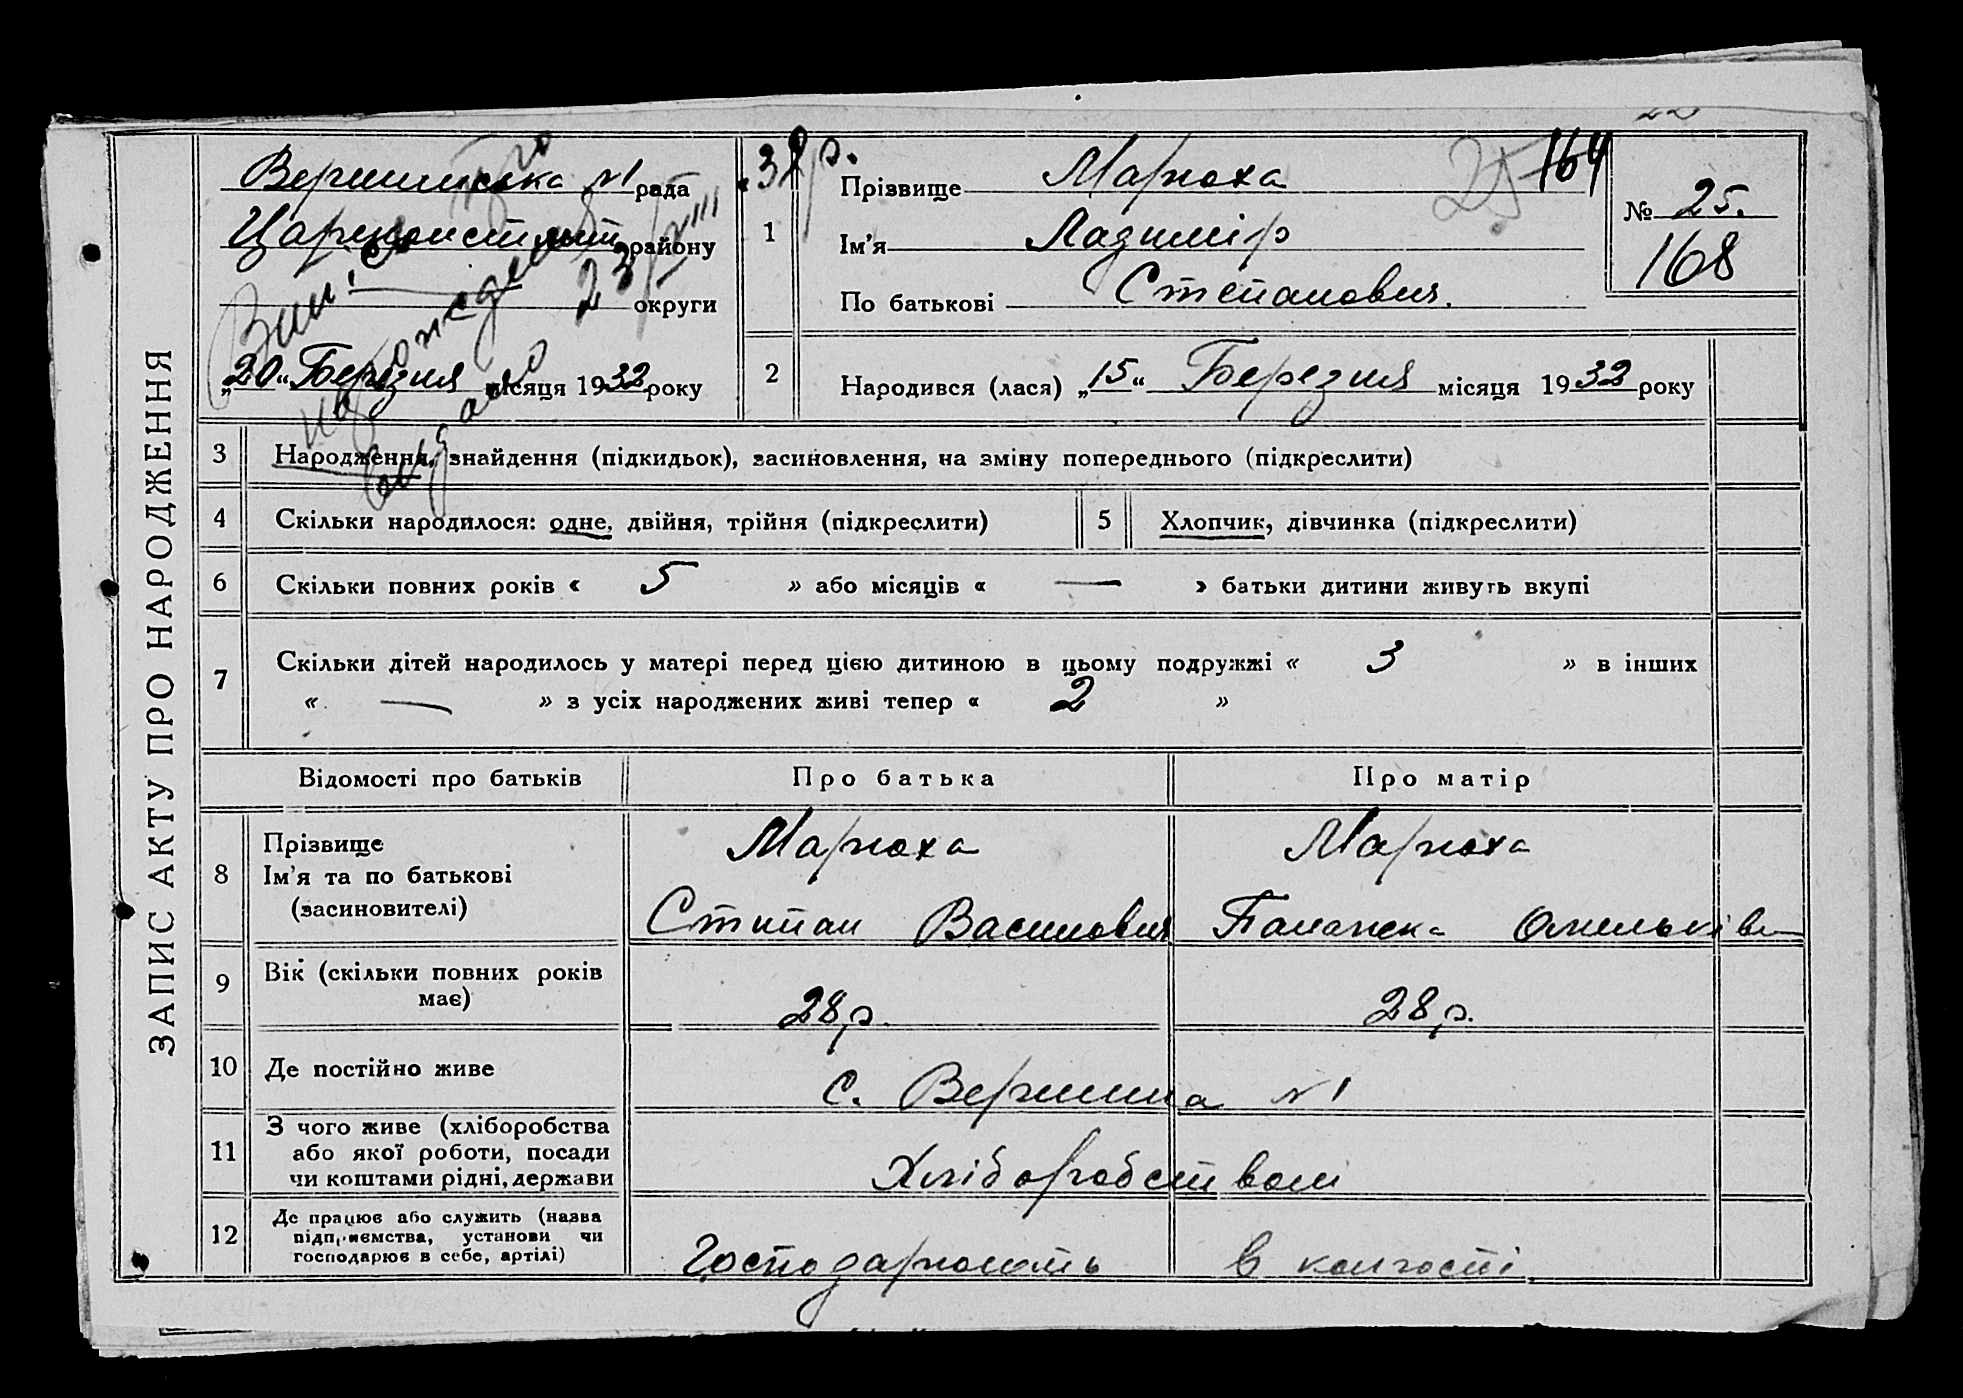 22
ЗАПИС АКТУ ПРО НАРОДЖЕННЯ
Вершинська №1 рада
району
округи
„20“ Березня місяця 1932 року
23/VIII
38 р.
1
Прізвище Марюха
Ім’я Лазимір
По батькові Степанович.
25 164
№ 25.
168
2 Народився (лася) „15“ Березня місяця 1932 року
3 Народження, знайдення (підкидьок), засиновлення, на зміну попереднього (підкреслити)
4 Скільки народилося: одне, двійня, трійня (підкреслити) 5 Хлопчик, дівчинка (підкреслити)
6 Скільки повних років « 5 » або місяців « — » батьки дитини живуть вкупі
7 Скільки дітей народилось у матері перед цією дитиною в цьому подружжі « 3 » в інших
« — » з усіх народжених живі тепер « 2 »
Відомості про батьків Про батька Про матір
8 Прізвище Марюха Марюха
Ім’я та по батькові
(засиновителі) Степан Василович Панаска Омельківна
9 Вік (скільки повних років
має) 28 р. 28 р.
10 Де постійно живе с. Вершина №1
11 З чого живе (хліборобства
або якої роботи, посади
чи коштами рідні, держави Хліборобством
12 Де працює або служить (назва
підприємства, установи чи
господарює в себе, артілі) Господарюють в колгоспі.